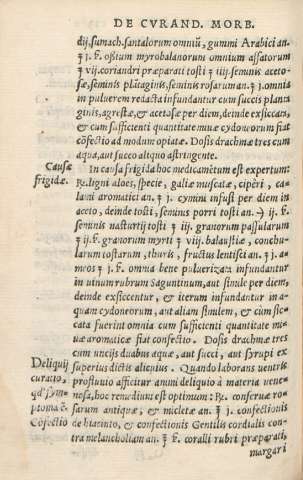 DE CVRAND. MORB.
dij, sumach. santalorum omniũ, gummi Arabici an.
ʒ j. ß. oßium myrobalanorum omnium aßatorum
ʒ vij. coriandri præparati tosti ʒ iiij. seminis aceto-
sæ, seminis plãtaginis, seminis rosarum an. ʒ j. omnia
in puluerem redacta infundantur cum succis planta
ginis, agrestæ, & acetosæ per diem, deinde exsiccan,
& cum sufficienti quantitate miuæ cydoneorum fiat
cõfectio ad modum opiatæ. Dosis drachmæ tres cum
aqua, aut succo aliquo astringente.
Causæ
frigidæ.
In causa frigida hoc medicamẽtum est expertum:
℞. ligni aloes, specie, galliæ muscatæ, ciperi, ca-
lami aromatici an. ʒ j. cymini infusi per diem in
aceto, deinde tosti, seminis porri tosti an. ij. ß.
seminis nasturtij tosti ʒ iij. granorum passularum
ʒ ij. ß. granorum myrti ʒ viij. balaustiæ, conchu-
larum tostarum, thuris, fructus lentisci an. ʒ j. a-
meos ʒ j. ß. omnia bene puluerizata infundantur
in uinum rubrum Saguntinum, aut simile per diem,
deinde exsiccentur, & iterum infundantur in a-
quam cydoneorum, aut aliam similem, & cum sic-
cata fuerint omnia cum sufficienti quantitate mi-
uæ aromaticæ fiat confectio. Dosis drachmæ tres
cum uncijs duabus aquæ, aut succi, aut syrupi ex
superius dictis alicuius. Quando laborans uentris
profluuio afficitur animi deliquio à materia uene-
nosa, hoc remedium est optimum: ℞. conseruæ ro-
sarum antiquæ, & micletæ an. ʒ j. confectionis
de hiacinto, & confectionis Gentilis cordialis con-
tra melancholiam an. ʒ ß. coralli rubri præparati,
Deliquij
curatio,
qd' sym-
ptoma ẽ.
Cõfectio
margari